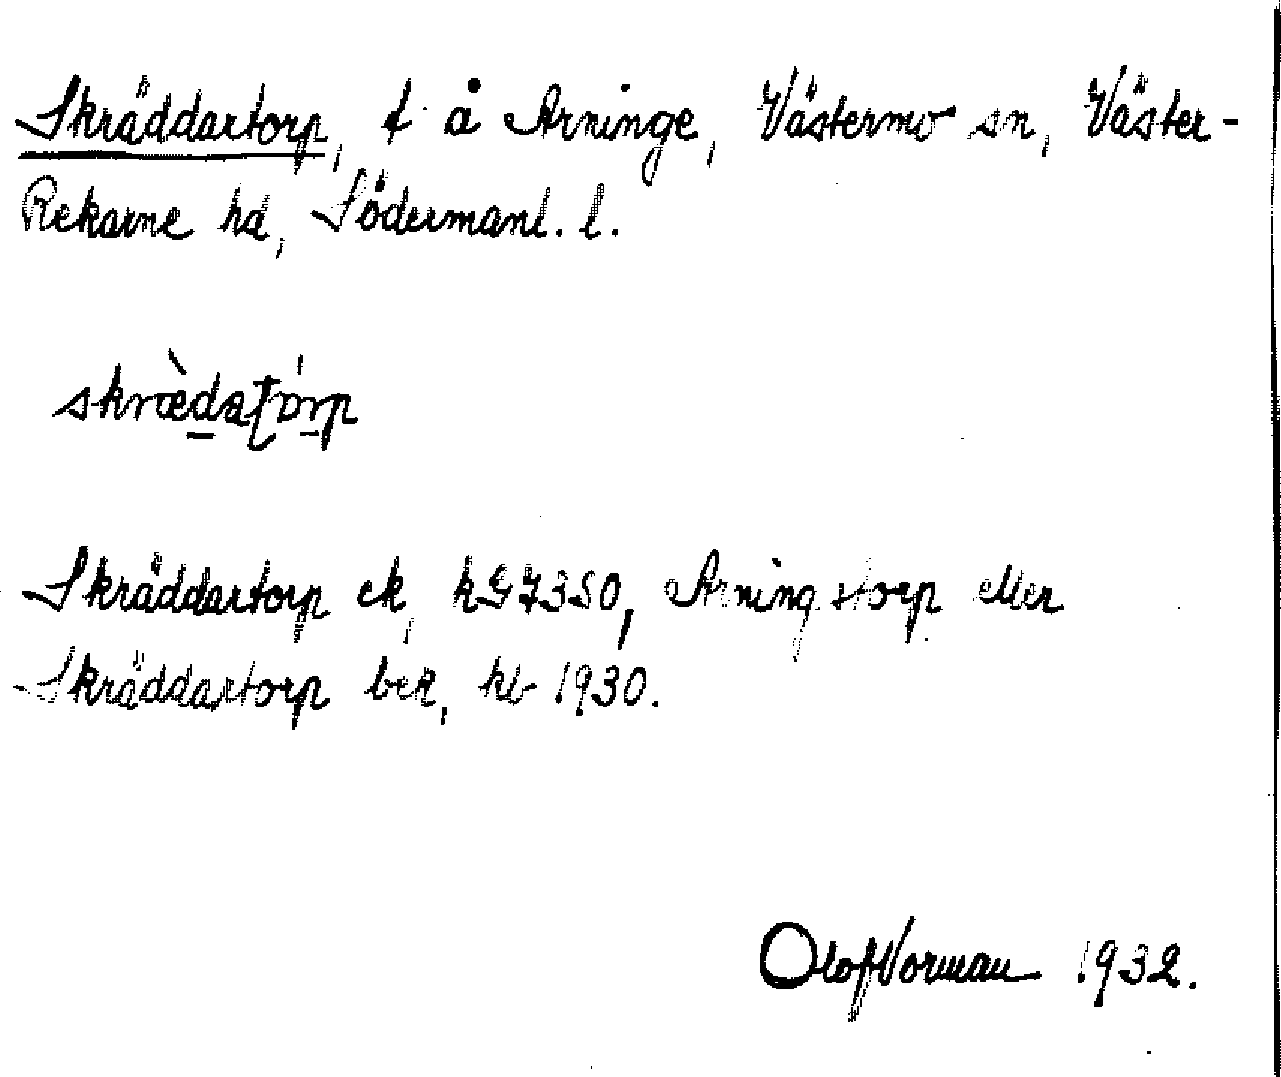 Skräddartorp, t å Arninge, Västermo sn, Väster-
Rekarne hd, Södermanl. l.
skræ̀daʈórp
Skräddartorp ek, hG7350, Arningstorp eller
Skräddartorp ber, kb 1930.
Olof Vorman 1932.